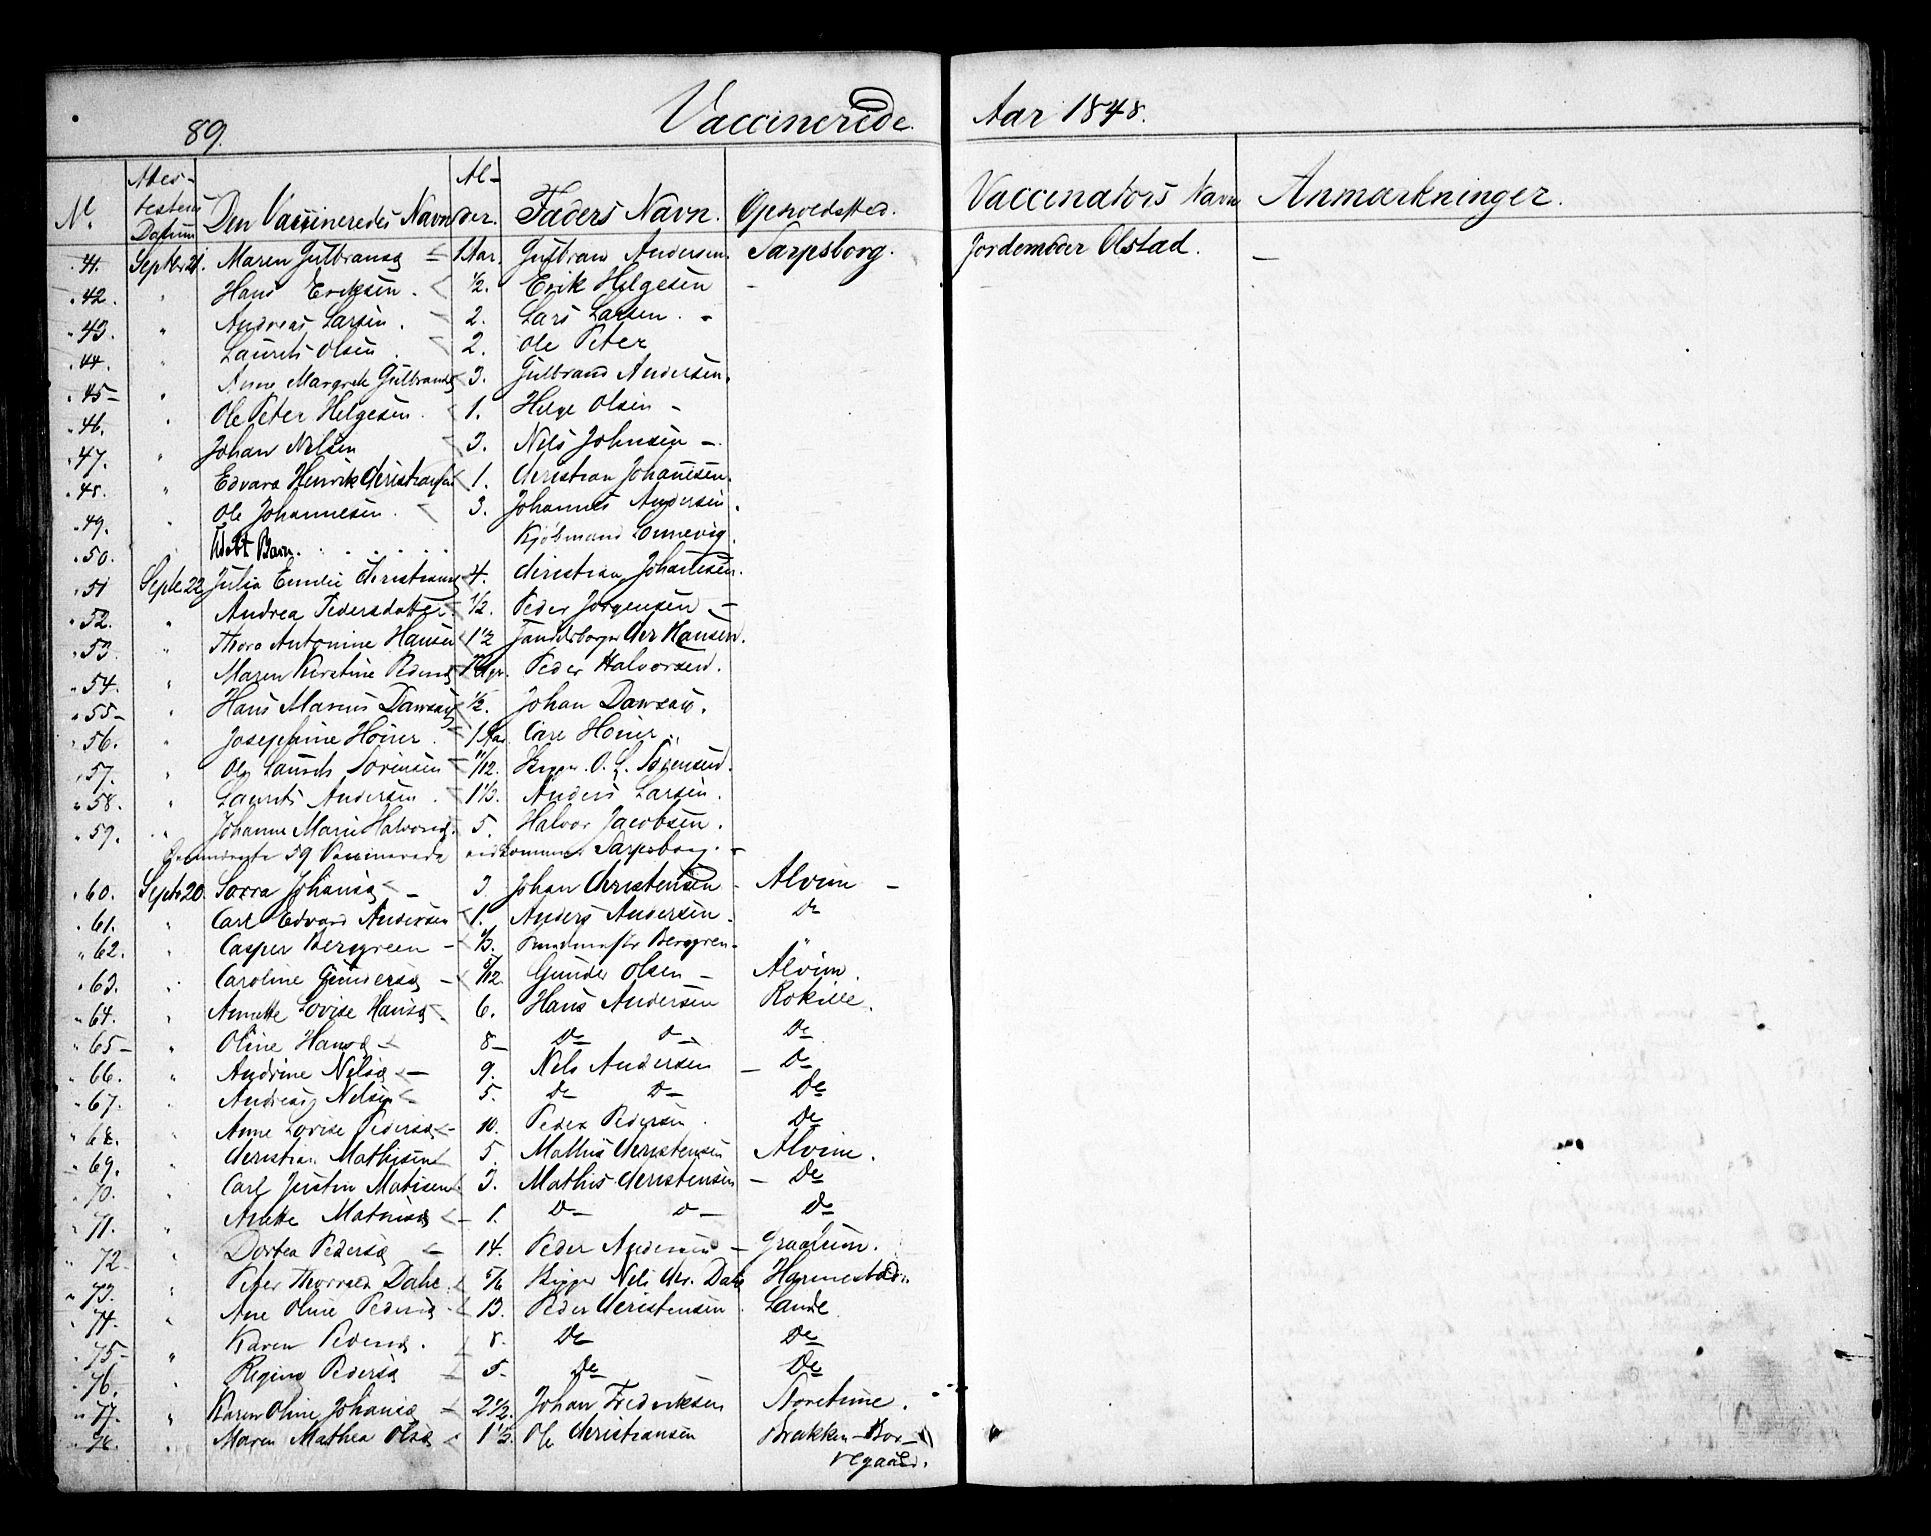 89.
Vaccinerede Aar 1848.
No. Attestens Datum Den Vaccineredes Navn Alder. Faders Navn. Opholdsted. Vaccinators Navn Anmærkninger.
41. Septbr 21. Maren Gulbransd 1 Aar. Gulbran Andersen. Sarpsborg. Jordemoder Olstad. —
42. " Hans Eriksen. 1/2. Erik Helgesen -
43. " Andreas Larsen. 2. Lars Larsen. -
44. " Laurits Olsen 2. Ole Peter
45 - " Anne Margrete Gulbransd 3. Gulbrand Andersen.
46. " Ole Peter Helgesen. 1. Helge Olsen -
47. " Johan Nilsen 3. Nils Johnsen -
48. " Edvard Henrik Christiansen 1. Christian Johannesen.
49. " Ole Johannesen. 3. Johannes Andersen.
50. " Udøbt Barn. . . . . . Kjøbmand Sonnevig.
51 Septe 22 Julia Emilie Christiansd 4. Christian Johannesen.
52. " Andrea Pedersdatter. 1/2. Peder Jørgensen -
53. " Thora Antonine Hansen 1 1/2 Handelsborger Chr Hansen.
54. " Maren Kirstine Pedersd Peder Halvorsen.
55 - " Hans Marius Dawsen 1/2. Johan Dawsen.
56. " Josephine Höier. 1 Aar. Carl Höier.
57. " Ole Laurits Sörensen 11/12. Skipper. O. L. Sörensen.
58. " Laurits Andersen. 1 1/3. Anders Larsen.
59. " Johanne Marie Halvorsd. 5. Halvor Jacobsen.
59 Vaccinerede vedkommer Sarpsborg. -
60. Septe 20. Sorra Johansd - 3. Johan Christensen - Alvim -
61. " Carl Edvard Andersen 1. Anders Andersen - Do
62. " Casper Berggreen - 1/3. Bergren - "
63. " Caroline Gundersd - /12. Gunder Olsen - Alvim.
64. " Annette Lovise Hansd. 6. Hans Andersen Rokille.
65 - " Oline Hansd 8 - Do Do Do
66. " Andrine Nilsd - 9. Nils Andersen - Do
67. " Andreas Nilsen 5. Do Do Do
68. " Anne Lovise Pedersd - 10. Peder Pedersen. Do
69. " Christian Mathisen 5. Mathis Christensen Alvim.
70. " Carl Justin Matisen 3. Mathis Christensen - Do
71. " Anette Mathisd - 1. Do Do Do
72 - " Dortea Pedersd 14. Peder Andersen - Graalum.
73. " Peter Thorvald Dahl. 5/6 Bygger Nils Chr. Dahl Hannestad.
74. " Ane Oline Pedersd 13. Peder Christensen Lande
75 - " Karen Pedersd. 8. Do Do
76. " Regine Pedersd 5. Do Do
77. " Karen Oline Johansd 2 1/2. Johan Fredriksen Storetune.
78. " Maren Mathea Olsd 1 1/3. Ole Christiansen Brakken - Bor-
regaard.